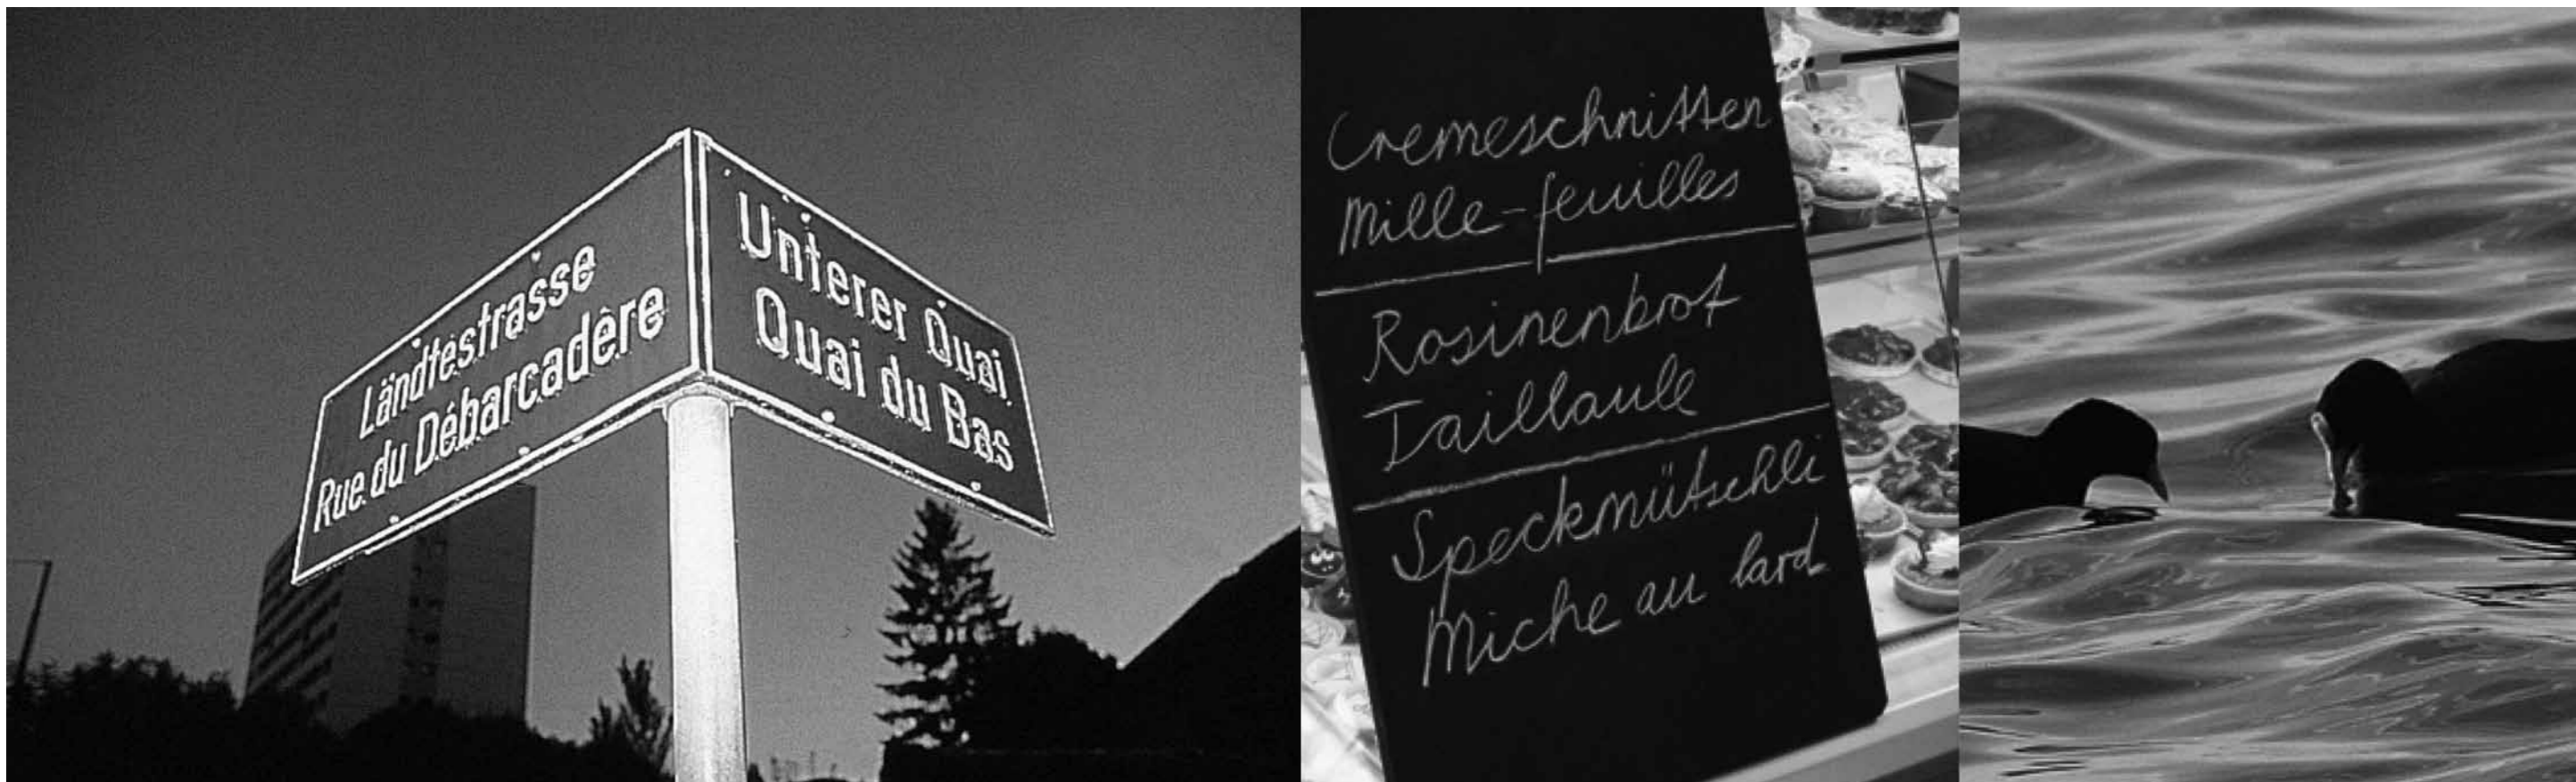 Ländtestrasse
Rue du Débarcadère
Unterer Quai
Quai du Bas
Cremeschnitten
Mille-feuilles
Rosinenbrot
Taillaule
Speckmütschli
Miche au lard